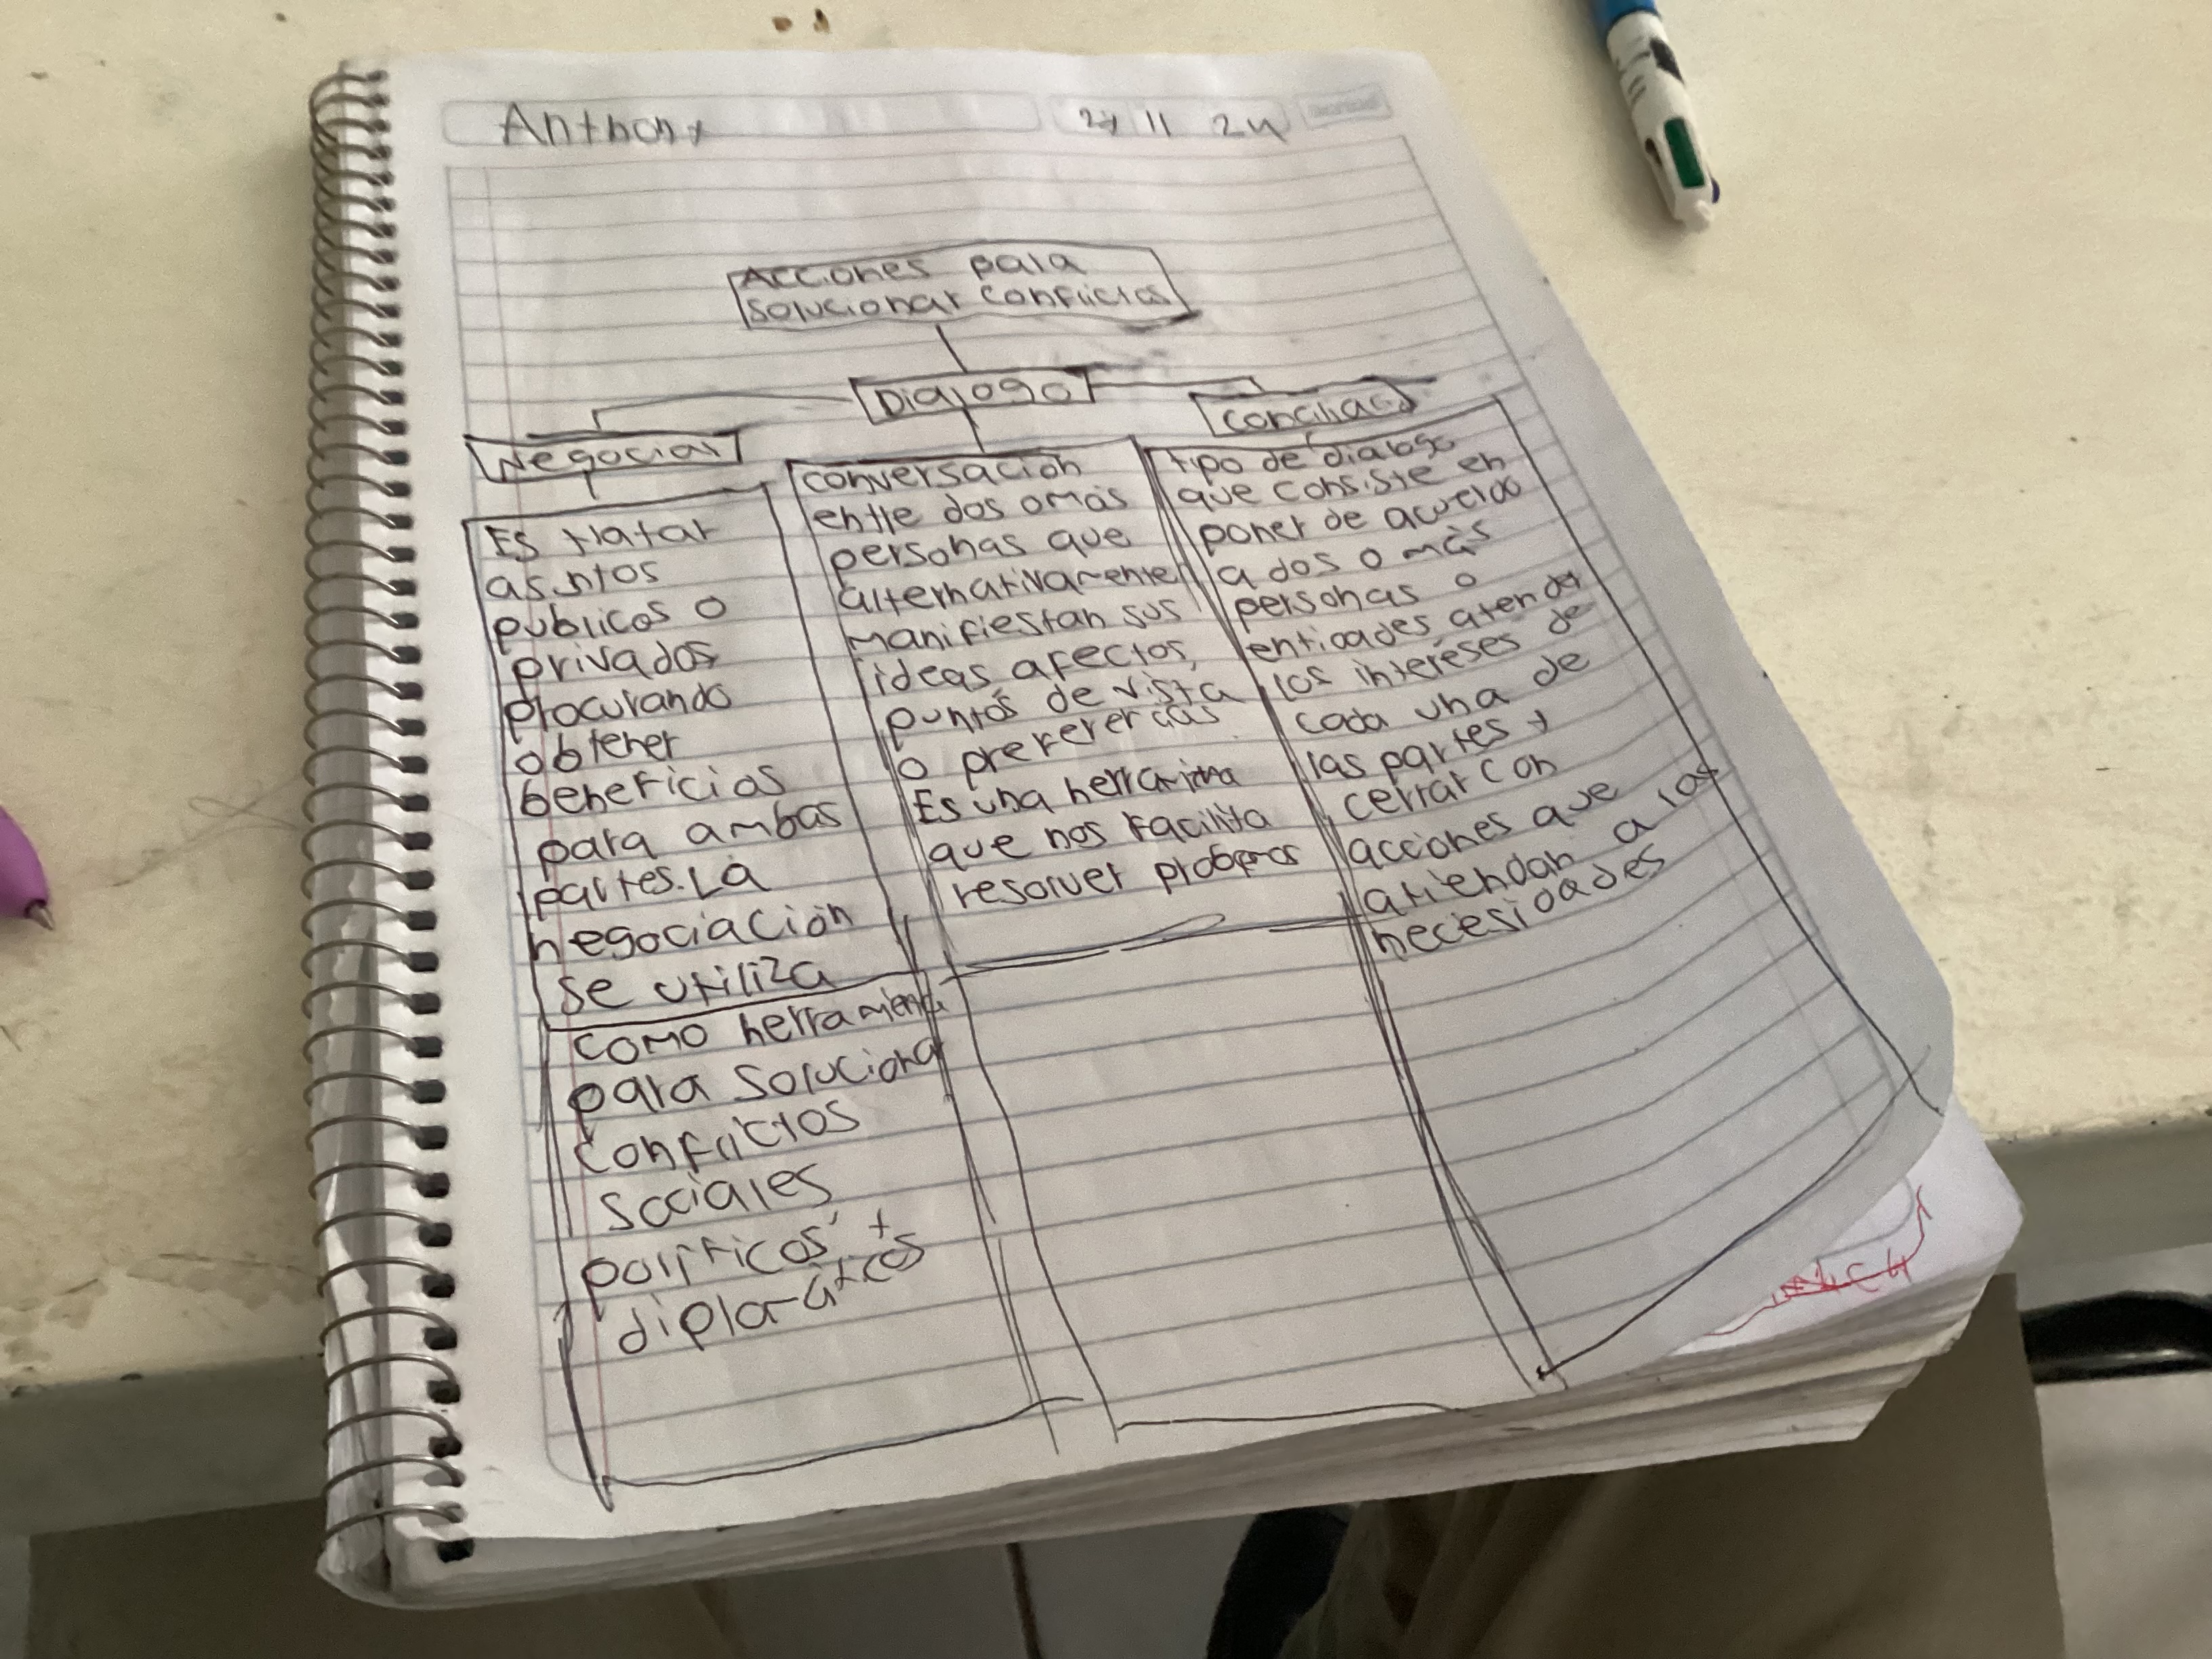 Anthony
27 11 24
Acciones para
solucionar conflictos
Dialogo
Negociar
Conciliac
Es tratar
asuntos
publicos o
privados
procurando
obtener
beneficios
para ambas
partes. La
negociación
se utiliza
como herramienta
para soluciona
conflictos
sociales
políticos, y
diplomáticos
conversación
entre dos o más
personas que
alternativamente
manifiestan sus
ideas afectos,
puntos de vista
o preferencias
Es una
que nos facilita
resolver problemas
tipo de dialogo
que consiste en
poner de acuerdo
a dos o más
personas o
entidades atender
los intereses de
cada una de
las partes y
cerrar con
acciones que
atiendan a las
necesidades